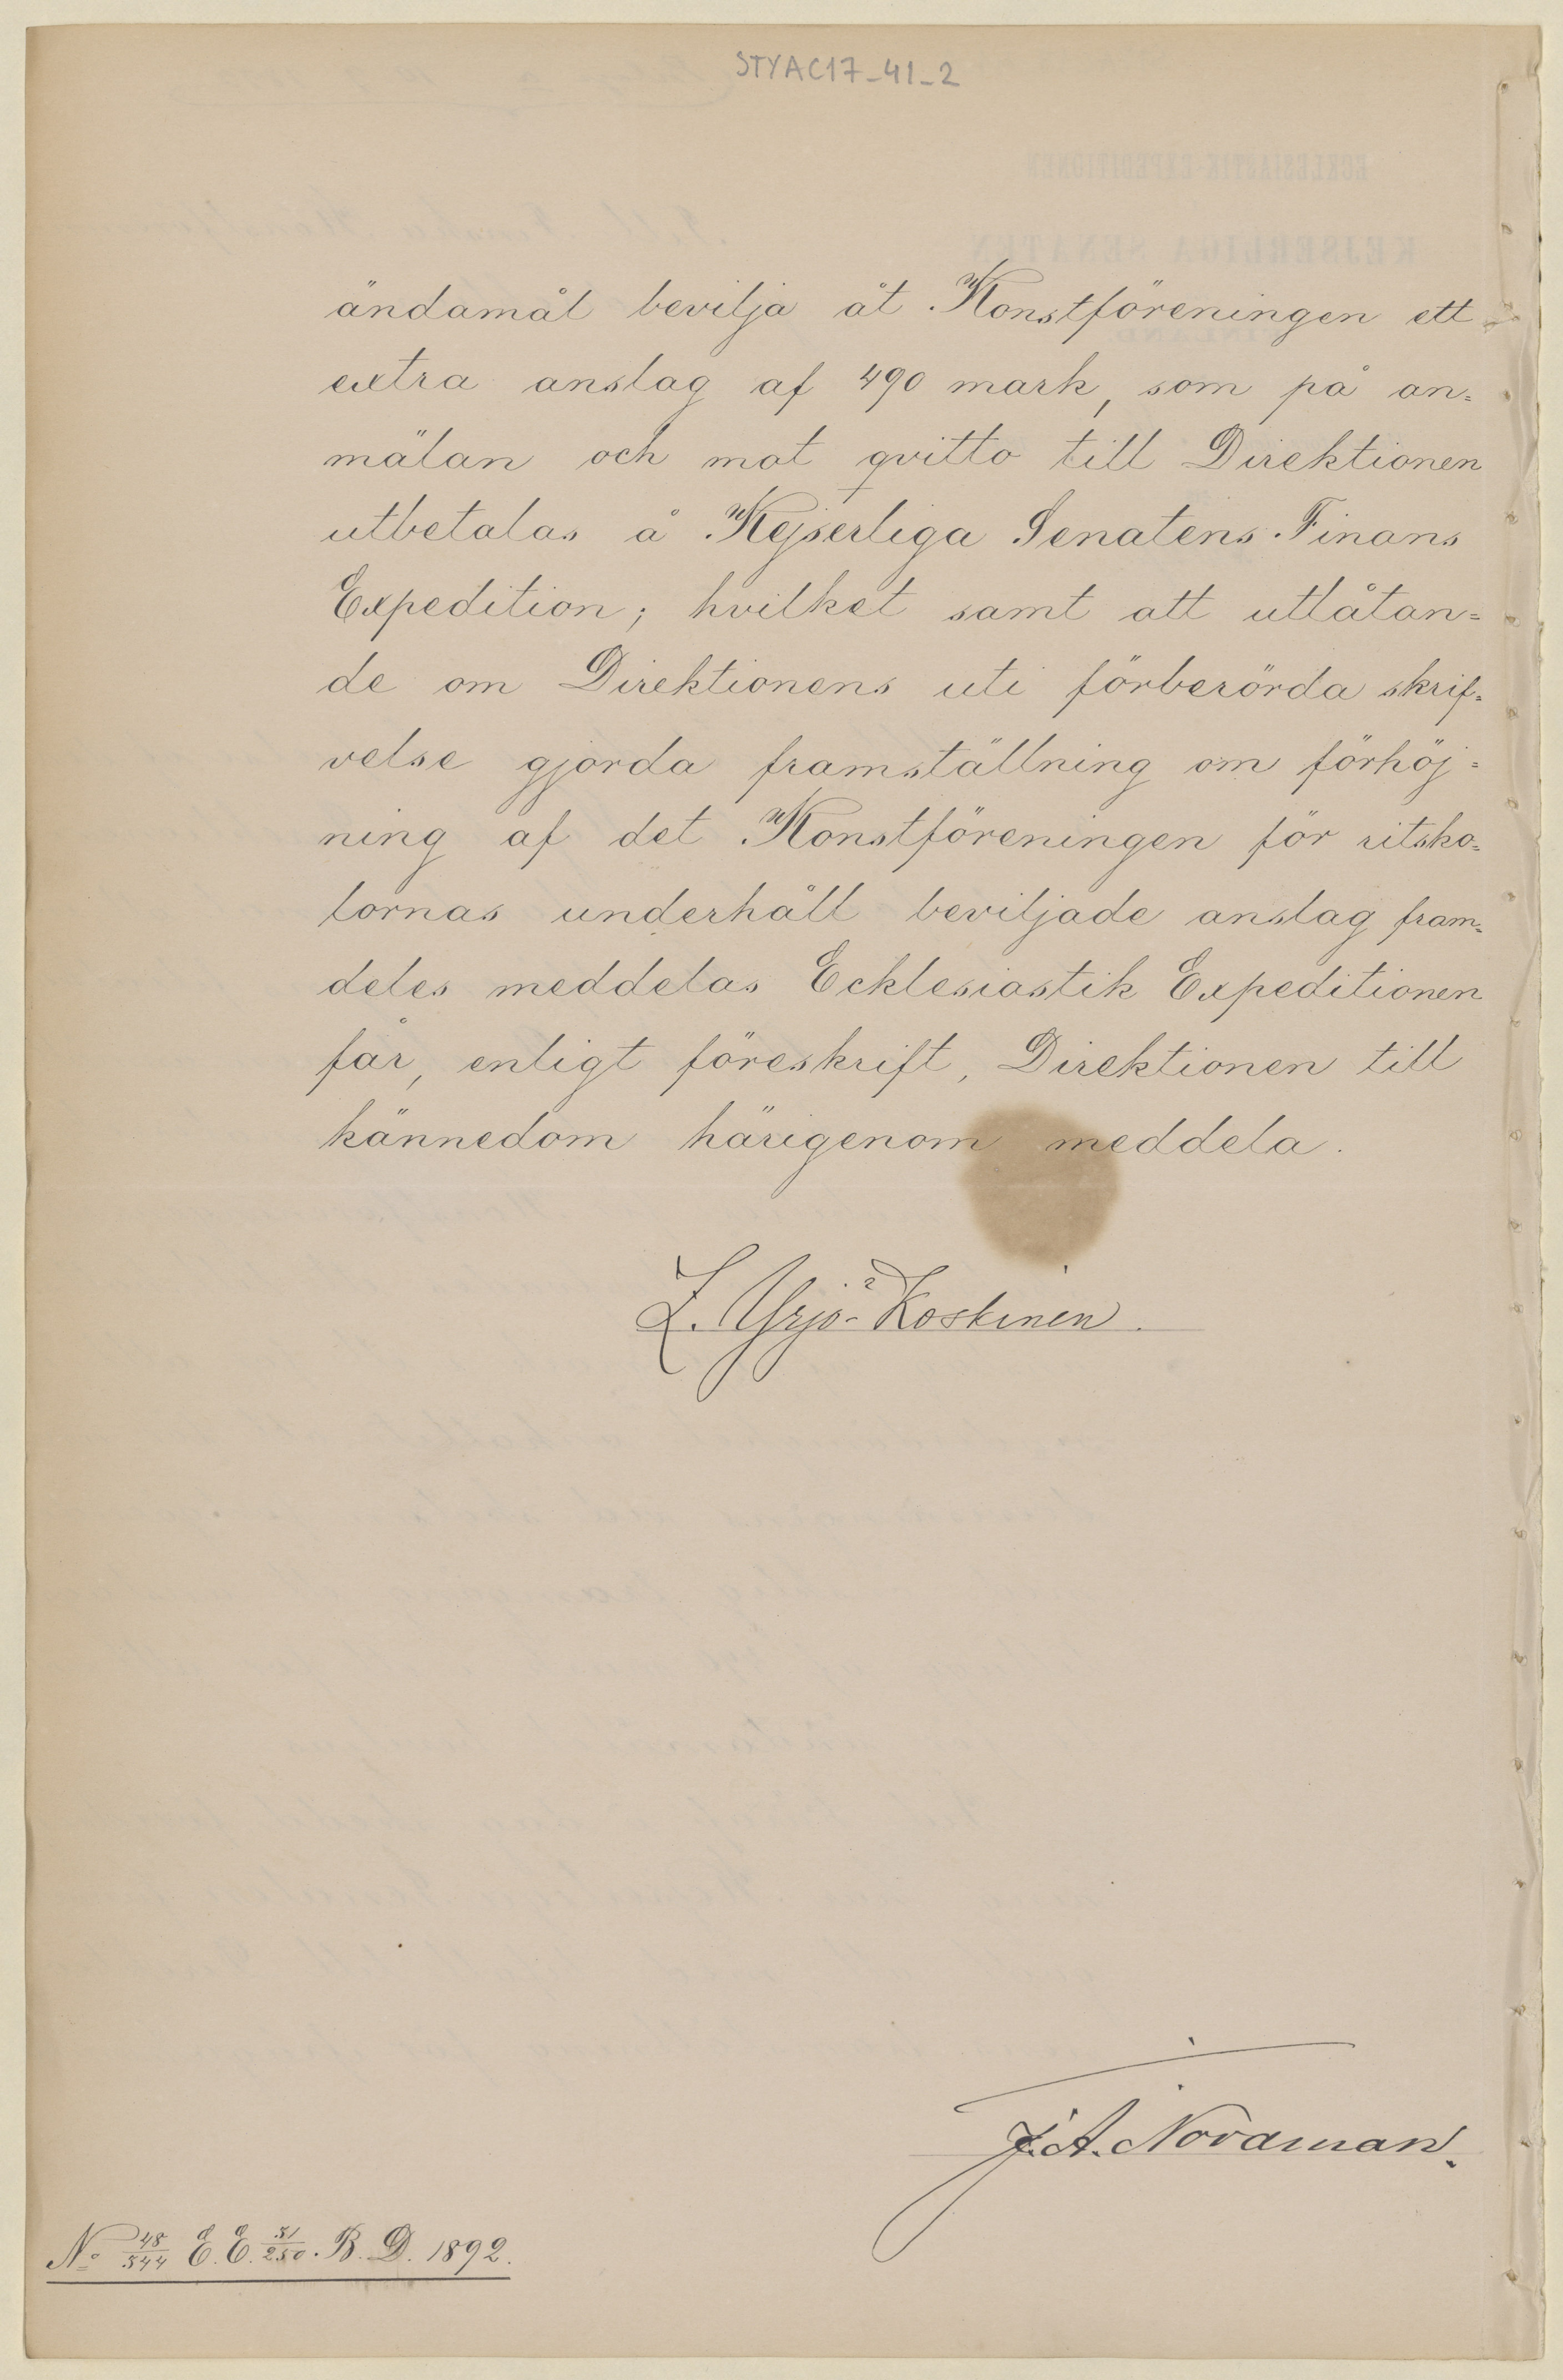 STYAC17_41_2
ändamål bevilja åt Konstföreningen ett
extra anslag af 490 mark, som på an=
mälan och mot qvitto till Direktionen
utbetalas å Kejserliga Senatens Finans
Expedition; hvilket samt att utlåtan=
de om Direktionens uti förberörda skrif=
velse gjorda framställning om förhöj=
ning af det Konstföreningen för ritsko=
lornas underhåll beviljade anslag fram=
deles meddelas Ecklesiastik Expeditionen
får, enligt föreskrift, Direktionen till
kännedom härigenom meddela.
Z. Yrjö-Koskinen.
J. A. Nordman.
No 48/544 E. E. 31/250. B. D. 1892.